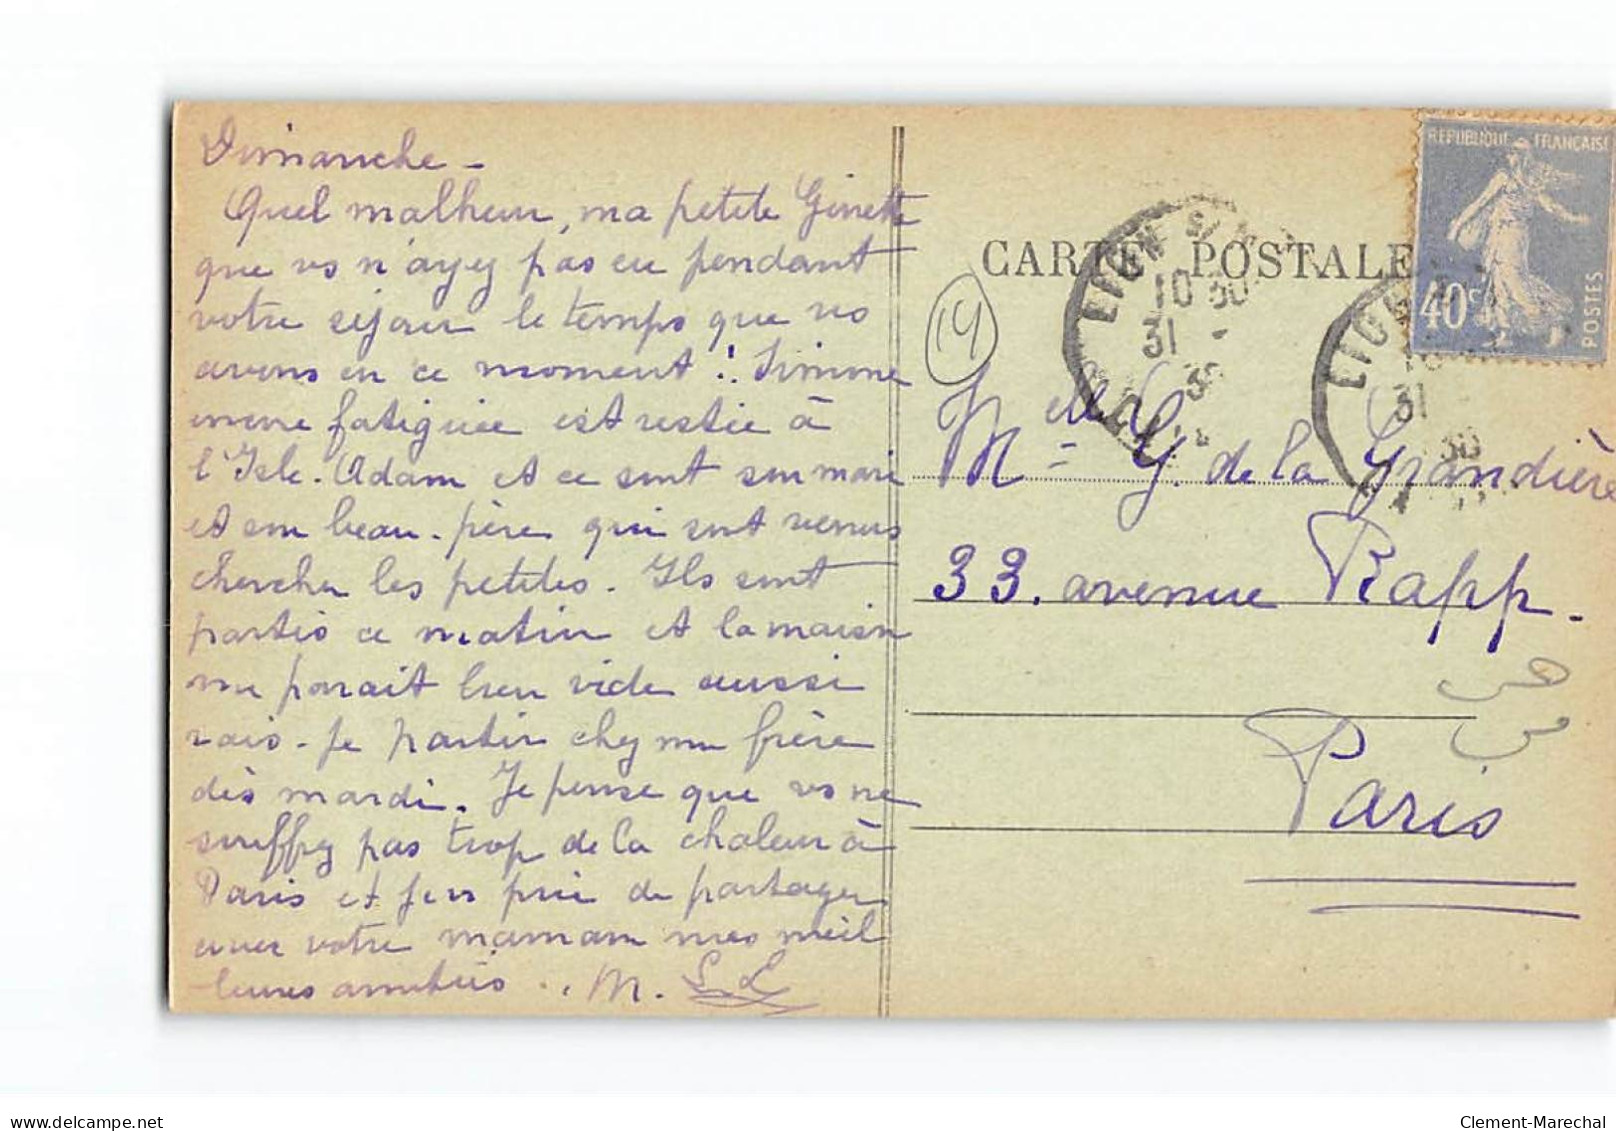 Dimanche -
Quel malheur, ma petite Ginette
que vs n'ayez pas eu pendant
votre séjour le temps que ns
avons en ce moment !. Simone
encore fatiguée est restée à
l'Isle-Adam et ce sont son mari
et son beau-père qui sont venus
chercher les petites. Ils sont
partis ce matin et la maison
me parait bien vide aussi
vais-je partir chez mon frère
dès mardi. Je pense que vs ne
souffrez pas trop de la chaleur à
Paris et je vs prie de partager
avec votre maman mes meil
leures amitiés .. M.
CARTE POSTALE
RÉPUBLIQUE FRANÇAISE
40c
POSTES
10 30
31
30
31
30
14
Melle G. de la Grandière
33. avenue Rapp.
Paris
delcampe.net
Clement-Marechal